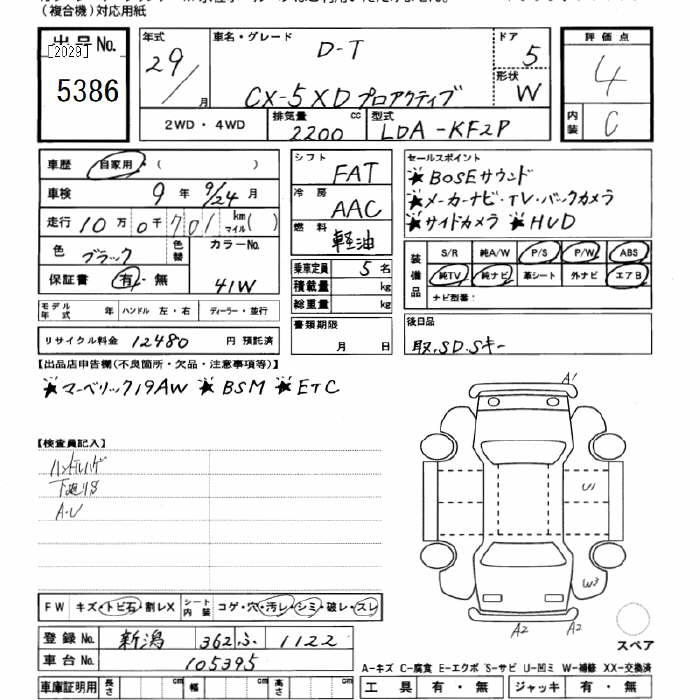 （複合機）対応用紙
出品No.
[2029]
5386
年式
29/ 月
車名・グレード
D-T
CX-5 XD プロアクティブ
ドア
5
形状
W
評価点
4
内装
C
2WD・4WD
排気量 2200 cc
型式 LDA-KF2P
車歴 自家用 ( )
車検 9年 9/24月
走行 10万0千701 km マイル( )
色 ブラック 色替 カラーNo.
41W
保証書 有・無
モデル年式 年 ハンドル 左・右 ディーラー・並行
リサイクル料金 12480 円 預託済
シフト FAT
冷房 AAC
燃料 軽油
乗車定員 5 名
積載量 kg
総重量 kg
書類期限
月 日
セールスポイント
★BOSEサウンド
★メーカーナビ・TV・バックカメラ
★サイドカメラ ★HUD
装備品
S/R 純A/W P/S P/W ABS
純TV 純ナビ 革シート 外ナビ エアB
ナビ型番:
後日品
取.SD.Sキー
【出品店申告欄(不良箇所・欠品・注意事項等)】
★マーベリック19AW ★BSM ★ETC
【検査員記入】
ハンドルハゲ
下廻りS
A・U
A1
U1
W3
A2 A2
スペア
FW キズ・トビ石・割レX シート内装 コゲ・穴・汚レ・シミ・破レ・スレ
登録No. 新潟 362 ふ 1122
車台No. 105395
車庫証明用 長さ cm 幅 cm 高さ cm
A-キズ C-腐食 E-エクボ S-サビ U-凹ミ W-補修 XX-交換済
工具 有・無 ジャッキ 有・無